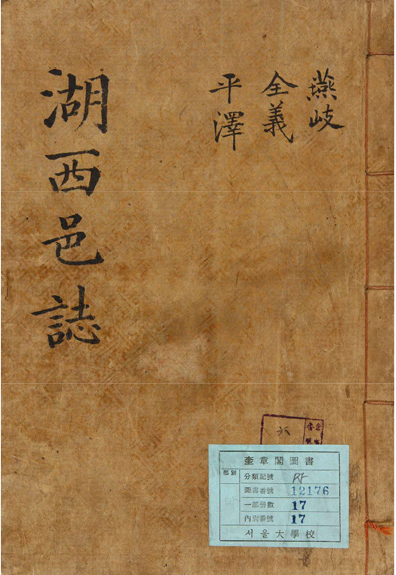 湖西邑誌
燕岐
全義
平澤
奎章閣圖書
分類記號
圖書番號 12176
一部冊數 17
內別番號 17
서울大學校